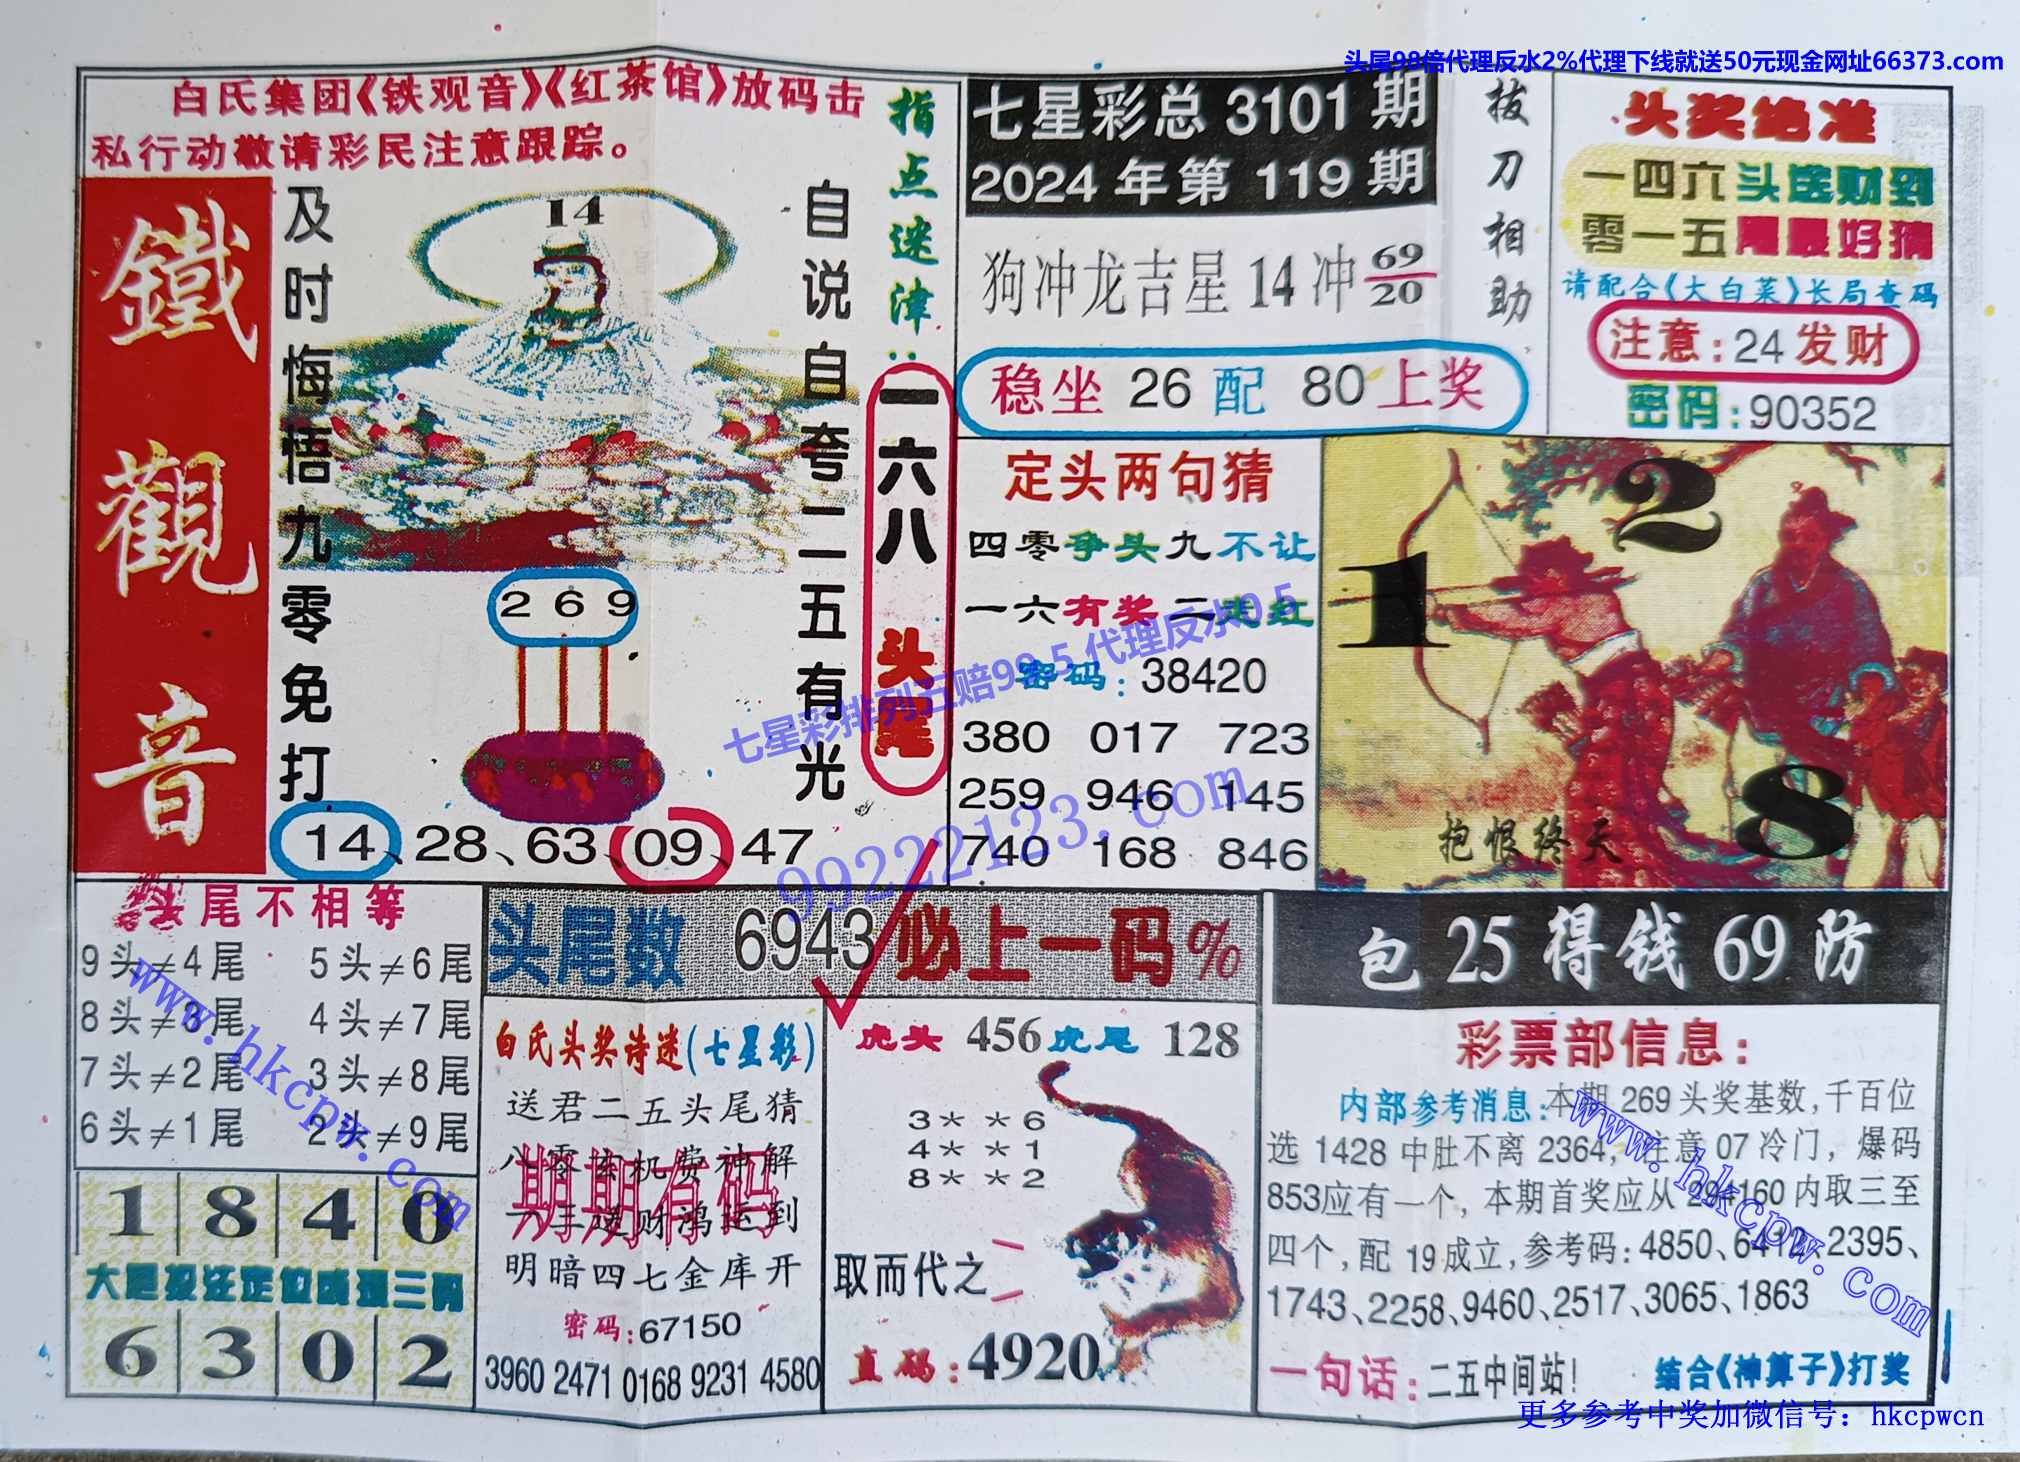 头尾98倍代理反水2%代理下线就送50元现金网址66373.com
白氏集团《铁观音》《红茶馆》放码击
私行动敬请彩民注意跟踪。
鐵觀音
及时悔悟九零免打
14
自说自夸二二五有光
指点迷津:
一六八头尾
269
14、28、63、09、47
七星彩总3101期
2024年第119期
狗冲龙吉星14冲69/20
稳坐26配80上奖
拔刀相助
头奖绝准
一四六头送财到
零一五尾最好猜
请配合《大白菜》长局查码
注意:24发财
密码:90352
定头两句猜
四零争头九不让
一六有奖二走红
密码:38420
380 017 723
259 946 145
740 168 846
1
2
8
抱恨终天
七星彩排列五赔99.5代理反水0.5
99222123.com
头尾不相等
9头≠4尾 5头≠6尾
8头≠3尾 4头≠7尾
7头≠2尾 3头≠8尾
6头≠1尾 2头≠9尾
www.hkcpw.com
1840
大尾投注定位成现三码
6302
头尾数6943必上一码%
白氏头奖诗迷(七星彩)
送君二五头尾猜
八零玄机费神解
一三送财鸿运到
明暗四七金库开
期期有码
密码:67150
3960 2471 0168 9231 4580
虎头456虎尾128
3**6
4**1
8**2
取而代之
直码:4920
包25得钱69防
彩票部信息:
内部参考消息:本期269头奖基数,千百位
选1428中肚不离2364,注意07冷门,爆码
853应有一个,本期首奖应从294160内取三至
四个,配19成立,参考码:4850、6412、2395、
1743、2258、9460、2517、3065、1863
www.hkcpw.com
一句话:二五中间站!
结合《神算子》打奖
更多参考中奖加微信号:hkcpwcn